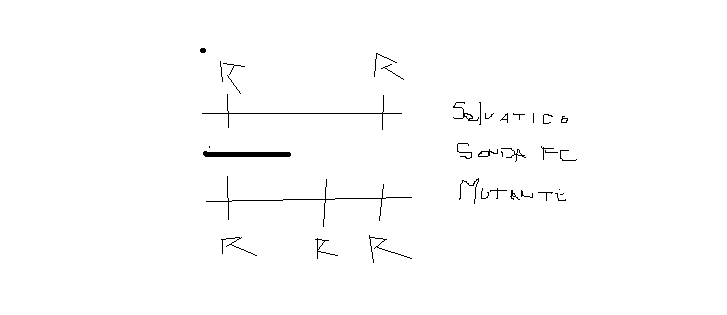 R R
SelVATICO
SONDA FC
MUTANTE
R R R